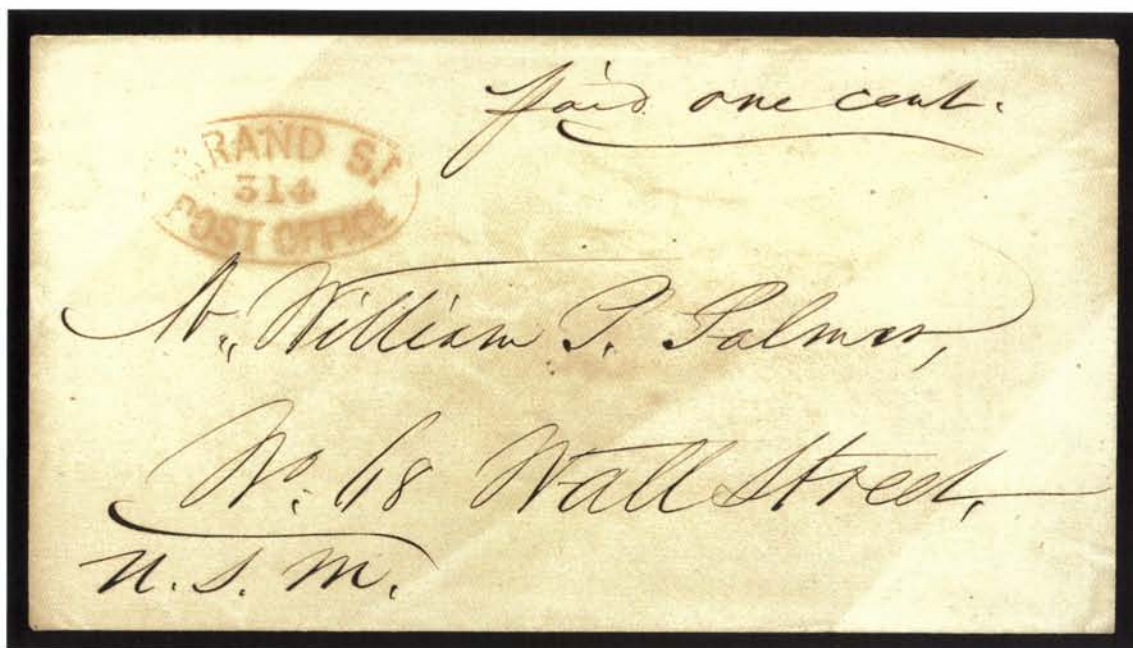 Paid one cent.
GRAND ST
314
POST OFFICE
Mr. William P. Palmer,
No. 68 Wall Street,
U.S.M.